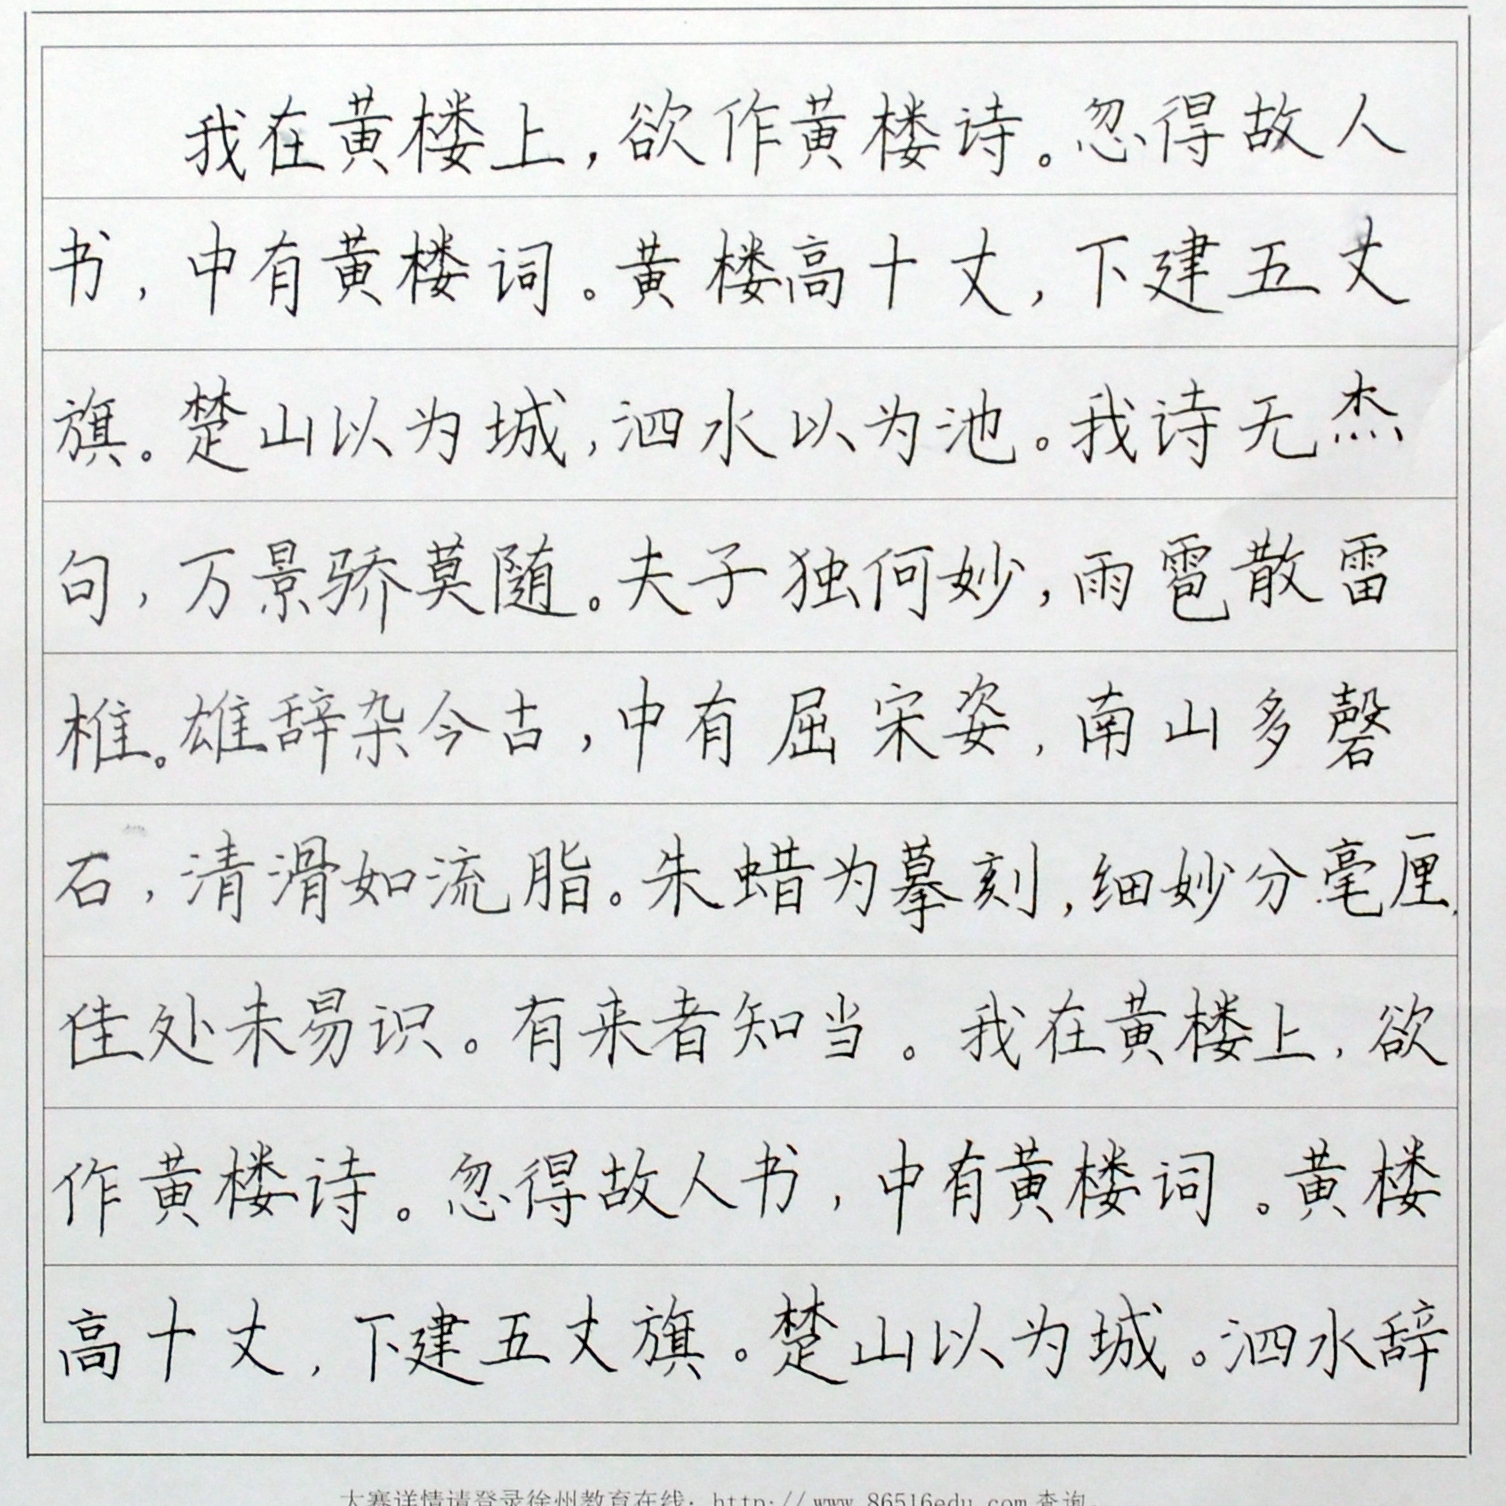 我在黄楼上，欲作黄楼诗。忽得故人
书，中有黄楼词。黄楼高十丈，下建五丈
旗。楚山以为城，泗水以为池。我诗无杰
句，万景骄莫随。夫子独何妙，雨雹散雷
椎。雄辞杂今古，中有屈宋姿，南山多磬
石，清滑如流脂。朱蜡为摹刻，细妙分毫厘，
佳处未易识。有来者知当。我在黄楼上，欲
作黄楼诗。忽得故人书，中有黄楼词。黄楼
高十丈，下建五丈旗。楚山以为城。泗水辞
大赛详情请登录徐州教育在线：http://www.86516edu.com查询。